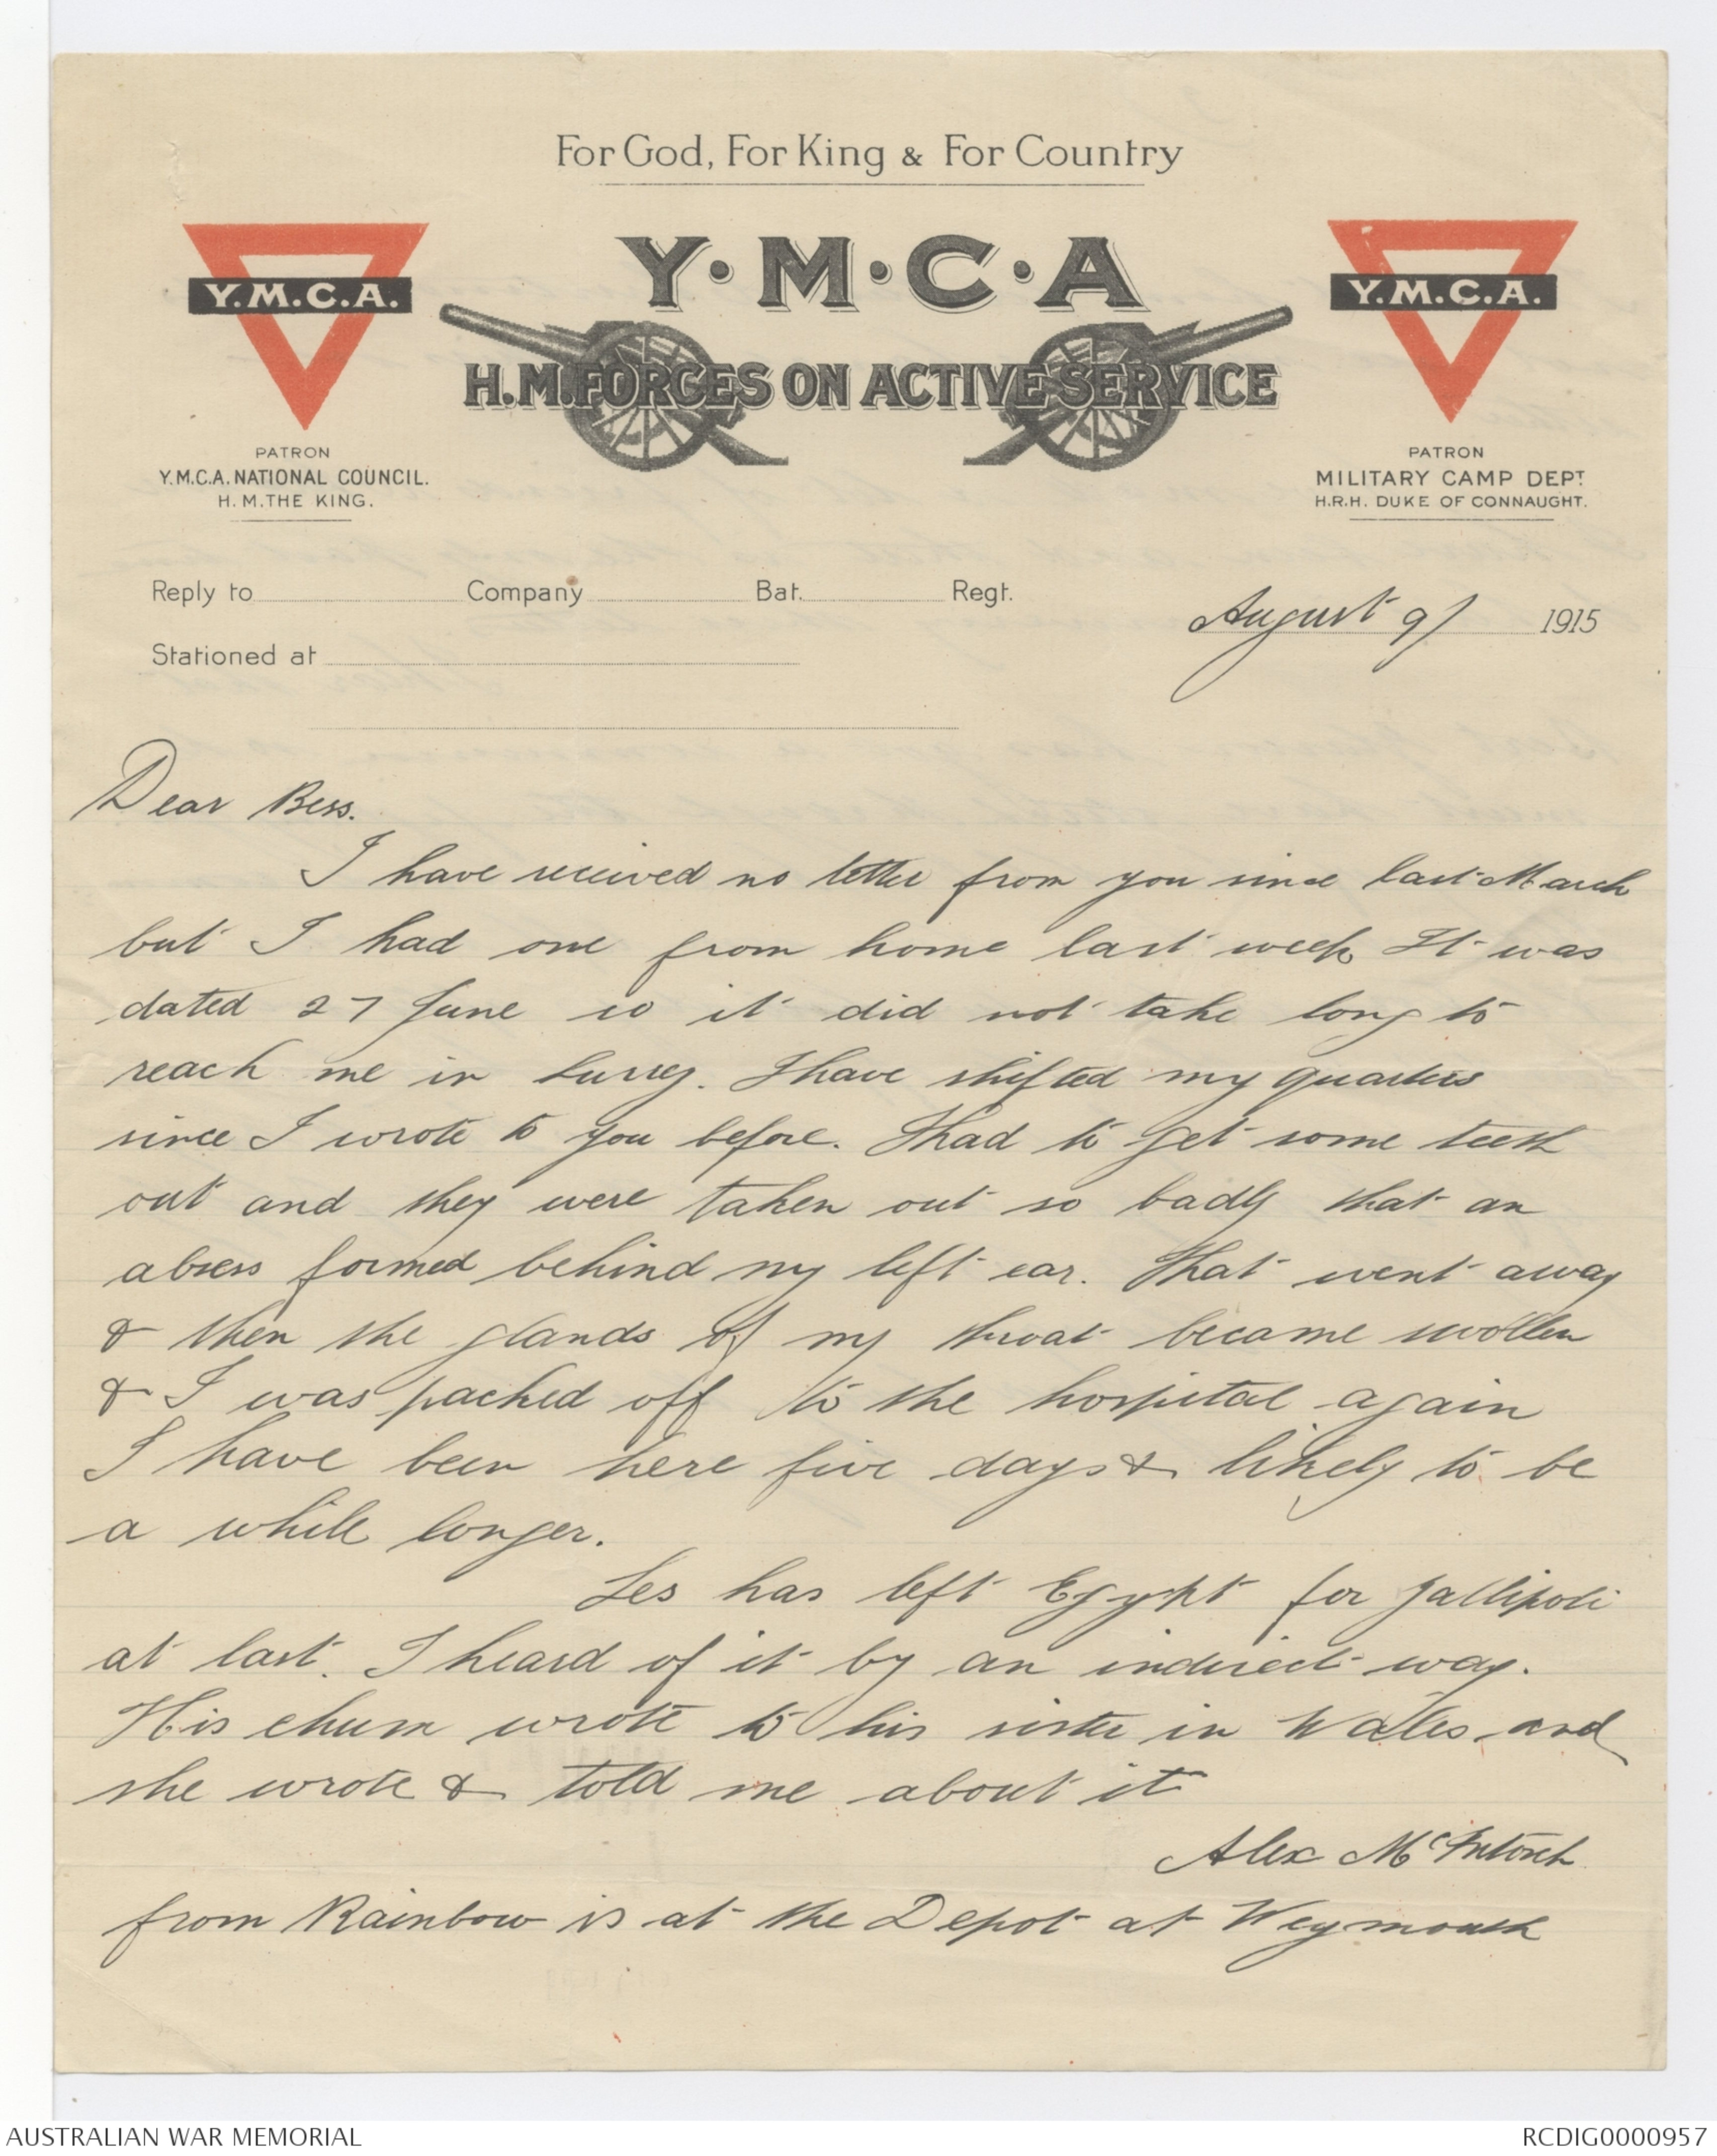 For God, For King & For Country
Y·M·C·A
H.M. FORCES ON ACTIVE SERVICE
Y.M.C.A.
Y.M.C.A.
PATRON
Y.M.C.A. NATIONAL COUNCIL.
H.M. THE KING.
PATRON
MILITARY CAMP DEPT.
H.R.H. DUKE OF CONNAUGHT.
Reply to Company Bat. Regt.
August 9/ 1915
Stationed at
Dear Bess.
I have received no letter from you since last March
but I had one from home last week It was
dated 27 June so it did not take long to
reach me in Surrey. I have shifted my quarters
since I wrote to you before. I had to get some teeth
out and they were taken out so badly that an
absess formed behind my left ear. That went away
& then the glands of my throat became swollen
& I was packed off to the hospital again
I have been here five days & likely to be
a while longer.
Les has left Egypt for Gallipoli
at last. I heard of it by an indirect way.
His chum wrote to his sister in Wales and
she wrote & told me about it
Alex McIntosh
from Rainbow is at the Depot at Weymouth
AUSTRALIAN WAR MEMORIAL
RCDIG0000957